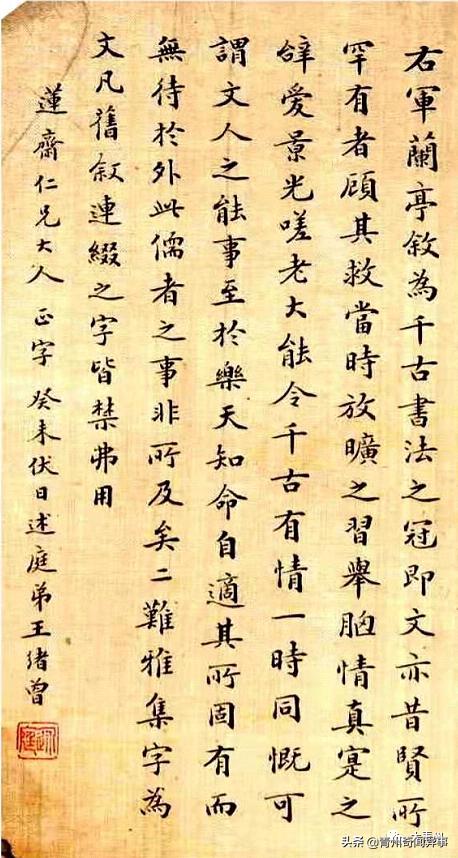 右軍蘭亭敘為千古書法之冠即文亦昔賢所
罕有者顧其救當時放曠之習舉胸情真寔之
辝愛景光嗟老大能令千古有情一時同慨可
謂文人之能事至於樂天知命自適其所固有而
無待於外此儒者之事非所及矣二難雅集字為
文凡舊敘連綴之字皆禁弗用
蓮齋仁兄大人 正字 癸未伏日述庭弟王緒曾
述庭
头条 @青州奇闻异事